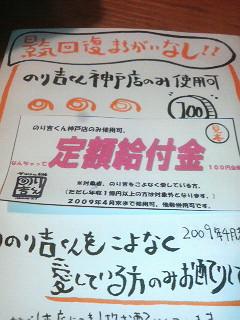 景気回復まちがいなし!!
のり吉くん神戸店のみ使用可
100円
のり吉くん神戸店のみ使用可。
見本
なんちゃって
定額給付金
100円金券
※対象者、のり吉をこよなく愛している方。
(ただし年収1億円以上の方は対象外となります。)
2009年4月末まで使用可。他券併用可です。
のり吉
のり吉くんをこよなく
2009年4月
愛している方のみお配りして